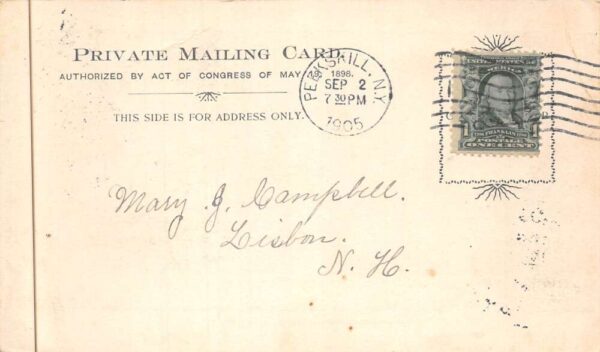 PRIVATE MAILING CARD.
AUTHORIZED BY ACT OF CONGRESS OF MAY 19, 1898.
THIS SIDE IS FOR ADDRESS ONLY.
PEEKSKILL, N.Y.
SEP 2
7 30 PM
1905
FRANKLIN
POSTAGE
ONE CENT
Mary J. Campbell.
Lisbon.
N. H.